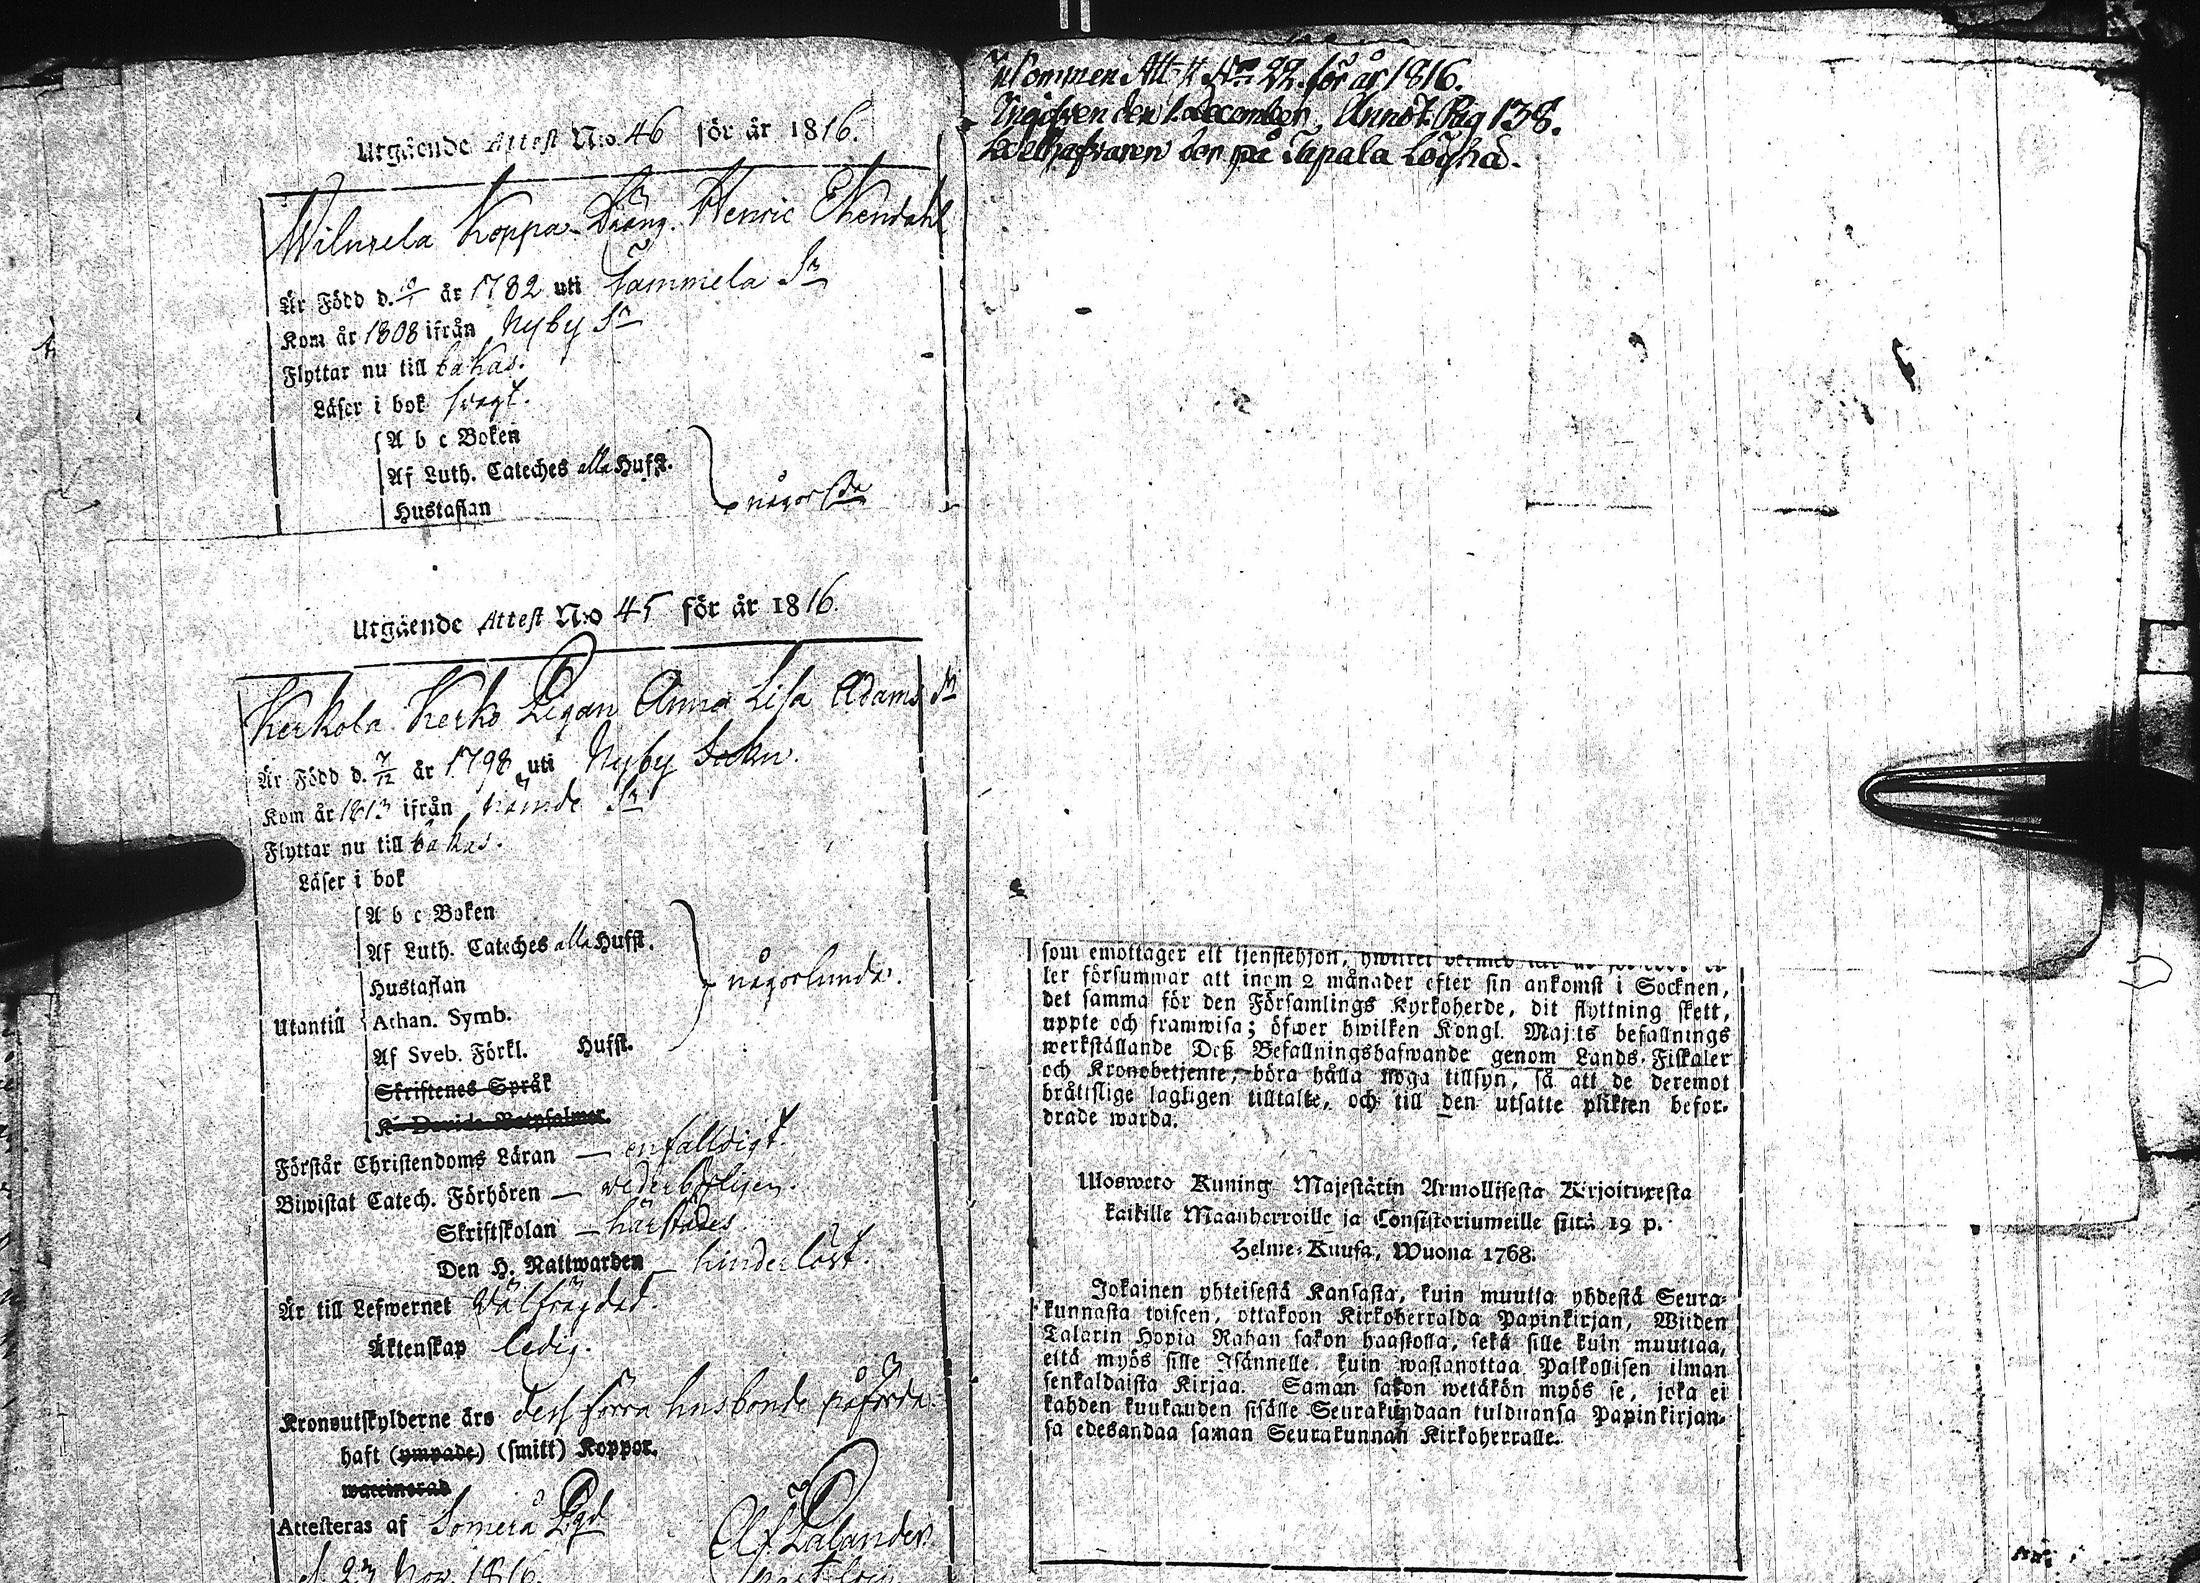 Utgående Attest N:o 46 för år 1816.
Wilusela Koppa Dräng Henric Ekendahl
Är Född d. år 1782 uti Tammela Sn
Kom år 1808 ifrån Nyby Sn
Flyttar nu till bakas.
Läser i bok svagt.
A b c Boken
Af Luth. Cateches alla Hufst.
Hustaflan
någorlda
Utgående Attest N:o 45 för år 1816.
Kerkola Kerko Pigan Anna Lisa Adams dr
Är Född d. 7/12 år 1798 uti Nyby Sokn.
Kom år 1813 ifrån Sn
Flyttar nu till bakas.
Läser i bok
A b c Boken
Af Luth. Cateches alla Hufst.
Hustaflan
någorlunda.
Utantill Athan. Symb.
Af Sveb. Förkl. Hufst.
Skriftenes Språk
K. Davids Botpsalmer.
Förstår Christendoms Läran — enfalldigt.
Biwistat Catech. Förhören — vederbörligen.
Skriftskolan — härstädes
Den H. Nattwarden — hinderlöst.
Är till Lefwernet Välfrägdad.
Äktenskap ledig.
Kronoutskylderne äro dess förra husbonde påförda.
haft (ympade) (smitt) Koppor.
waccinerad
Attesteras af Somero Pgd
Palander
d. 23 Nov. 1816.
Inkommen Att-t No 22. för år 1816.
Ingifven den 1. December. Annot. Pag 138.
Bedelhafvaren bor på Tapala
som emottager ett tjenstehjon,
ler försummar att inom 2 månader efter sin ankomst i Socknen,
det samma för den Församlings Kyrkoherde, dit flyttning skett,
uppte och framwisa; öfwer hwilken Kongl. Maj:ts befallnings
werkställande Deß Befallningshafwande genom Lands-Fiskaler
och Kronobetjente, böra hålla noga tillsyn, så att de deremot
bråttslige lagligen tilltalte, och till den utsatte plikten befor-
drade warda.
Ulosweto Kuning. Majestätin Armollisesta Kirjoituxesta
kaikille Maanherroille ja Consistoriumeille siitä 19 p.
Helme-Kuusa, Wuona 1768.
Jokainen yhteisestä Kansasta, kuin muutta yhdestä Seura-
kunnasta toiseen, ottakoon Kirkoherralda Papinkirjan, Wiiden
Talarin Hopia Rahan sakon haastolla, sekä sille kuin muuttaa,
että myös sille Isännelle, kuin wastanottaa Palkollisen ilman
senkaldaista Kirjaa. Saman sakon wetäkön myös se, joka ei
kahden kuukauden sisälle Seurakundaan tulduansa Papinkirjan-
sa edesandaa saman Seurakunnan Kirkoherralle.